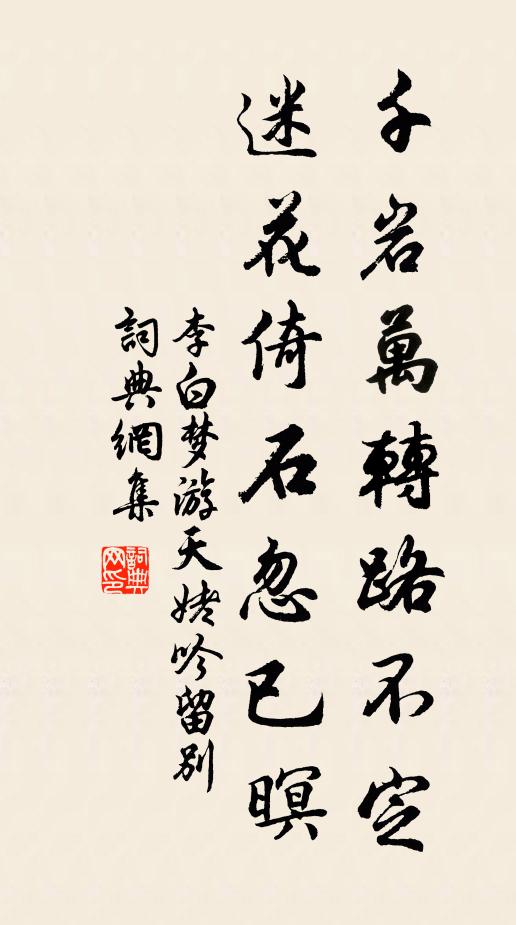 千岩萬轉路不定
迷花倚石忽已暝
李白梦游天姥吟留别
詞典網集
詞典网印